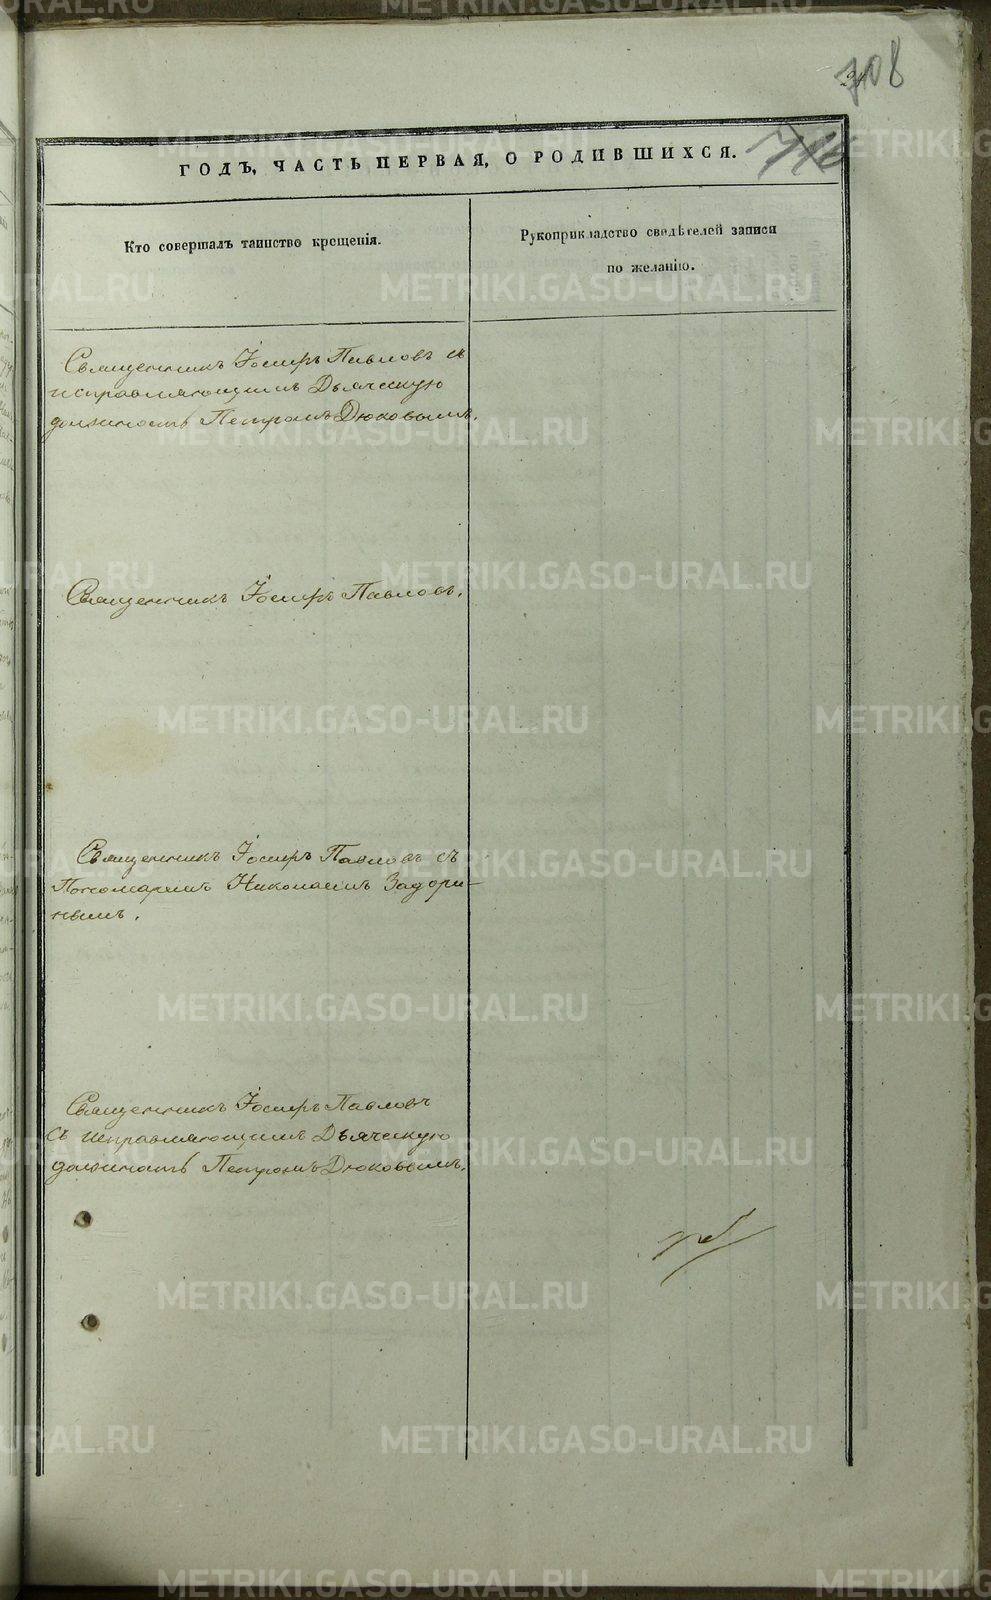 708
ГОДЪ, ЧАСТЬ ПЕРВАЯ, О РОДИВШИХСЯ.
Кто совершалъ таинство крещенія.
Рукоприкладство свидѣтелей записи
по желанію.
Священникъ Іосифъ Павловъ съ
исправляющимъ Дьяческую
должность Петромъ Дюковымъ.
Священникъ Іосифъ Павловъ.
Священникъ Іосифъ Павловъ съ
Пономаремъ Николаемъ Задори-
нымъ.
Священникъ Іосифъ Павловъ
съ исправляющимъ Дьяческую
должность Петромъ Дюковымъ.
METRIKI.GASO-URAL.RU